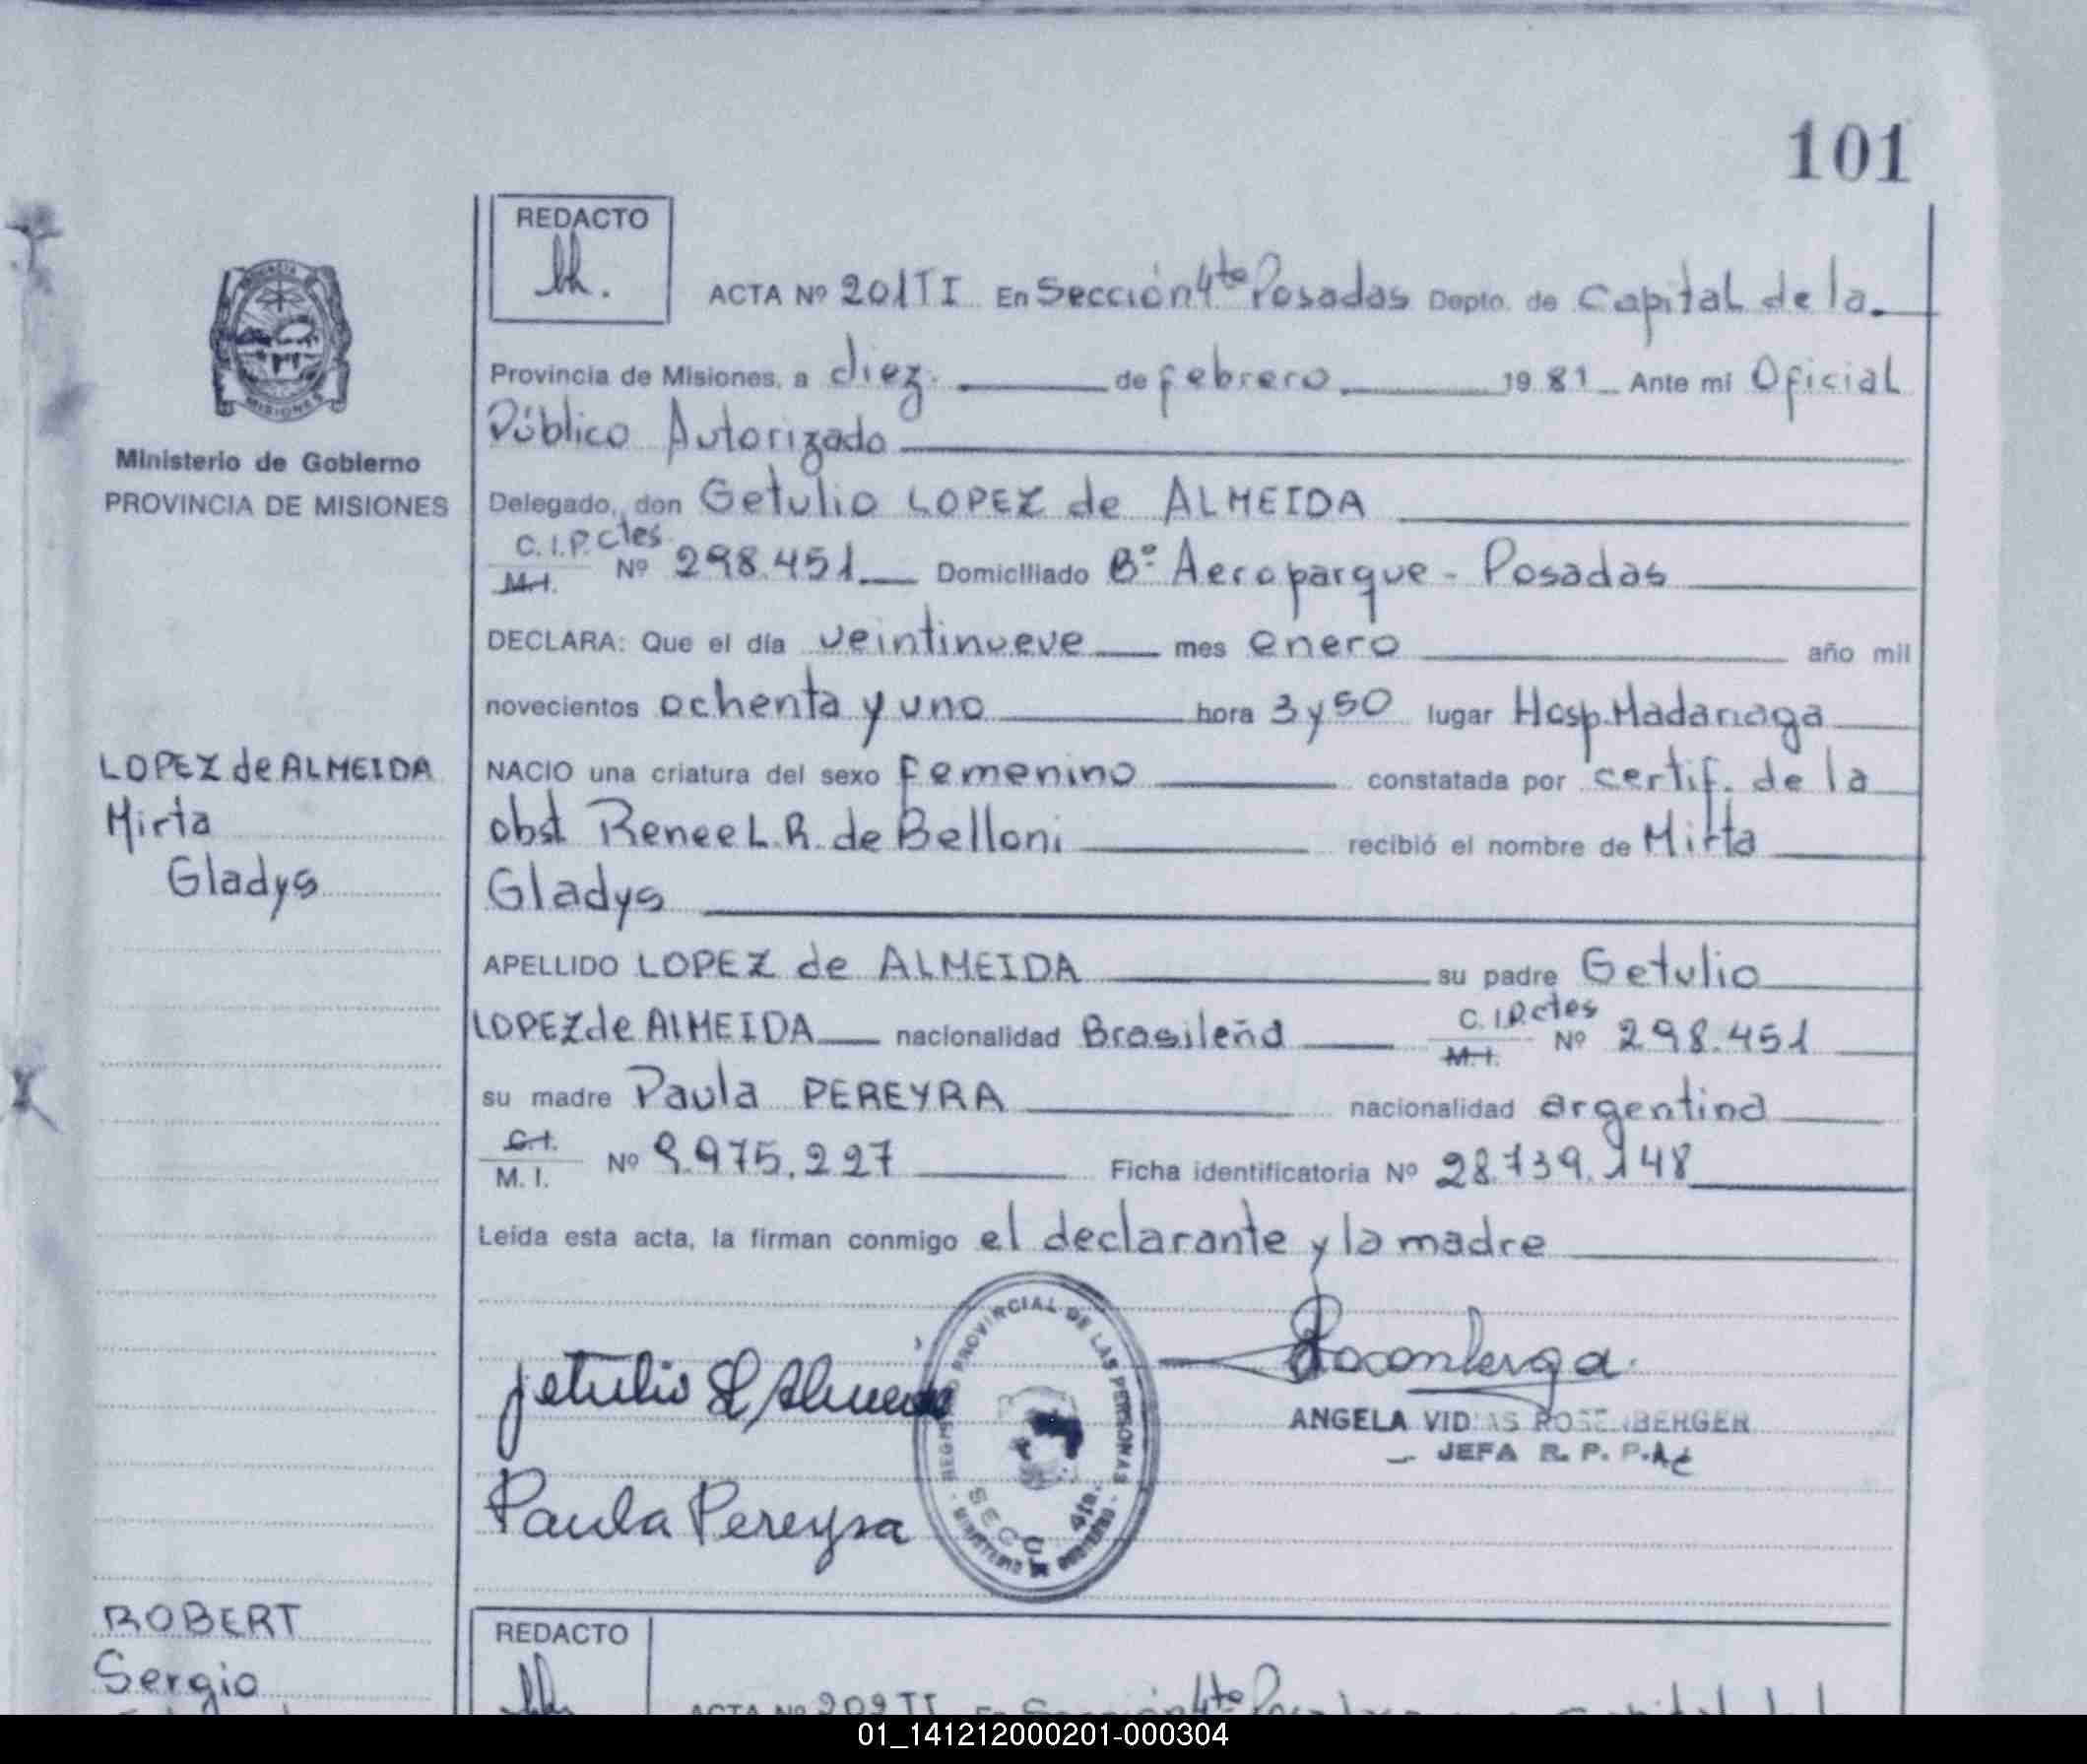 101
REDACTO
ACTA Nº 201TI En Sección 4ta Posadas Depto. de Capital de la
Provincia de Misiones, a diez de febrero 1981 Ante mi Oficial
Público Autorizado
Ministerio de Gobierno
PROVINCIA DE MISIONES
Delegado, don Getulio LOPEZ de ALMEIDA
C.I.P.ctes
M.I. Nº 298.451 Domiciliado Bº Aeroparque - Posadas
DECLARA: Que el día veintinueve mes enero año mil
novecientos ochenta y uno hora 3 y 50 lugar Hosp. Madariaga
LOPEZ de ALMEIDA
Mirta
Gladys
NACIO una criatura del sexo femenino constatada por certif. de la
obst Renee L. R. de Belloni recibió el nombre de Mirta
Gladys
APELLIDO LOPEZ de ALMEIDA su padre Getulio
LOPEZ de ALMEIDA nacionalidad Brasileña C.I.P.ctes M.I. Nº 298.451
su madre Paula PEREYRA nacionalidad argentina
C.I.
M.I. Nº 9.975.227 Ficha identificatoria Nº 28.139.148
Leída esta acta, la firman conmigo el declarante y la madre
REGISTRO PROVINCIAL DE LAS PERSONAS
SECC 4ta.
ANGELA VIDAS ROSENBERGER
JEFA R. P. P.
Paula Pereyra
ROBERT
Sergio
REDACTO
ACTA Nº 202TI En Sección 4ta Posadas
01_141212000201-000304